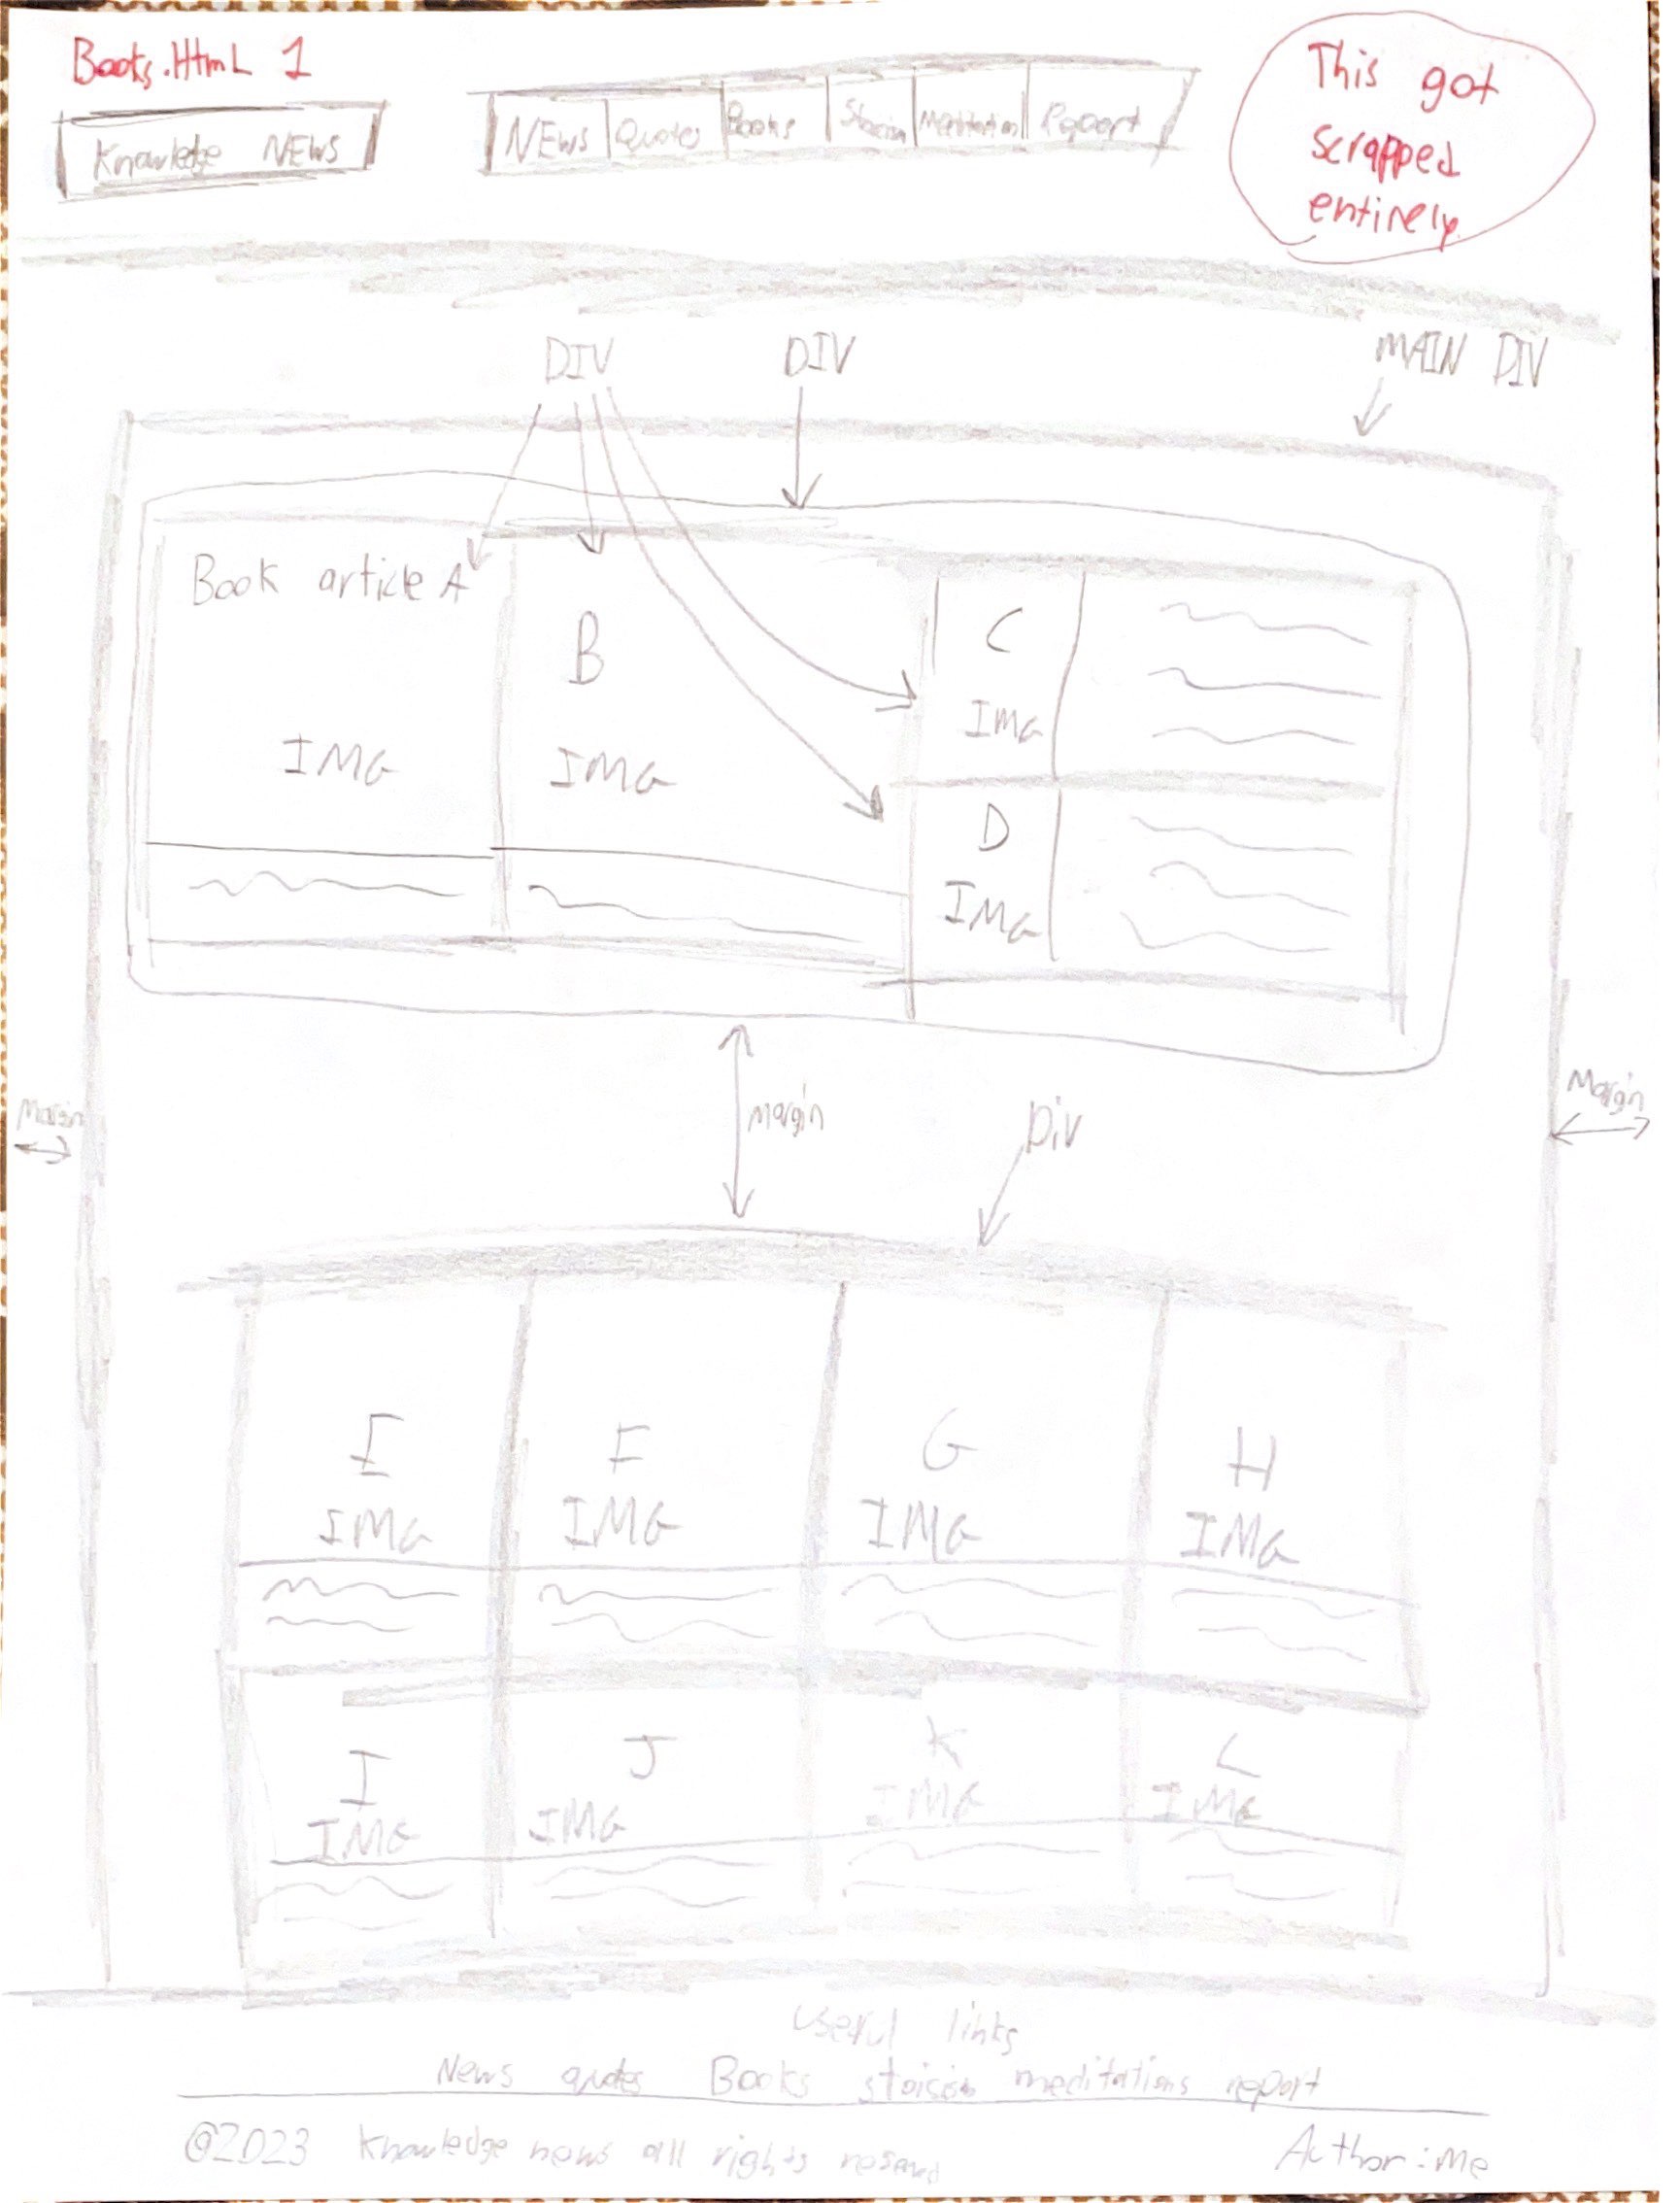 Books.HtmL 1
Knowledge NEWS
NEWS Quotes Books Stoicism Meditation Report
This got
scrapped
entirely.
DIV
DIV
MAIN DIV
Book article A
IMG
B
IMG
C
IMG
D
IMG
Margin
margin
Div
Margin
E
IMG
F
IMG
G
IMG
H
IMG
I
IMG
J
IMG
K
IMG
L
IMG
useful links
News quotes Books stoisism meditations report
@2023 knowledge news all rights
Author: Me